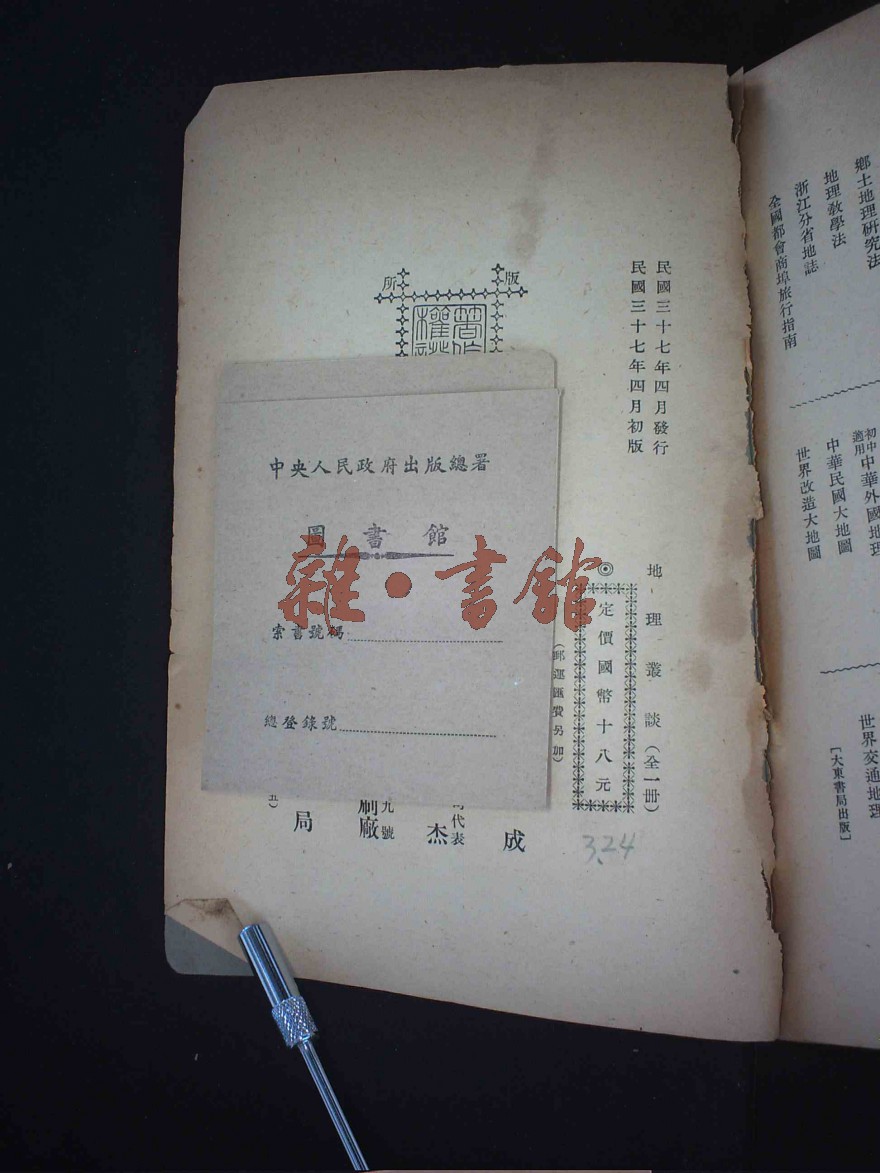 鄉土地理研究法
地理教學法
浙江分省地誌
全國都會商埠旅行指南
初中適用中華外國地理
中華民國大地圖
世界改造大地圖
世界交通地理
[大東書局出版]
民國三十七年四月發行
民國三十七年四月初版
地理叢談(全一册)
◎定價國幣十八元
(郵運匯費另加)
3.24
版
所
著作
權
成
代表
杰
九號
刷廠
局
五)
中央人民政府出版總署
圖書館
索書號碼
總登錄號
雜·書館